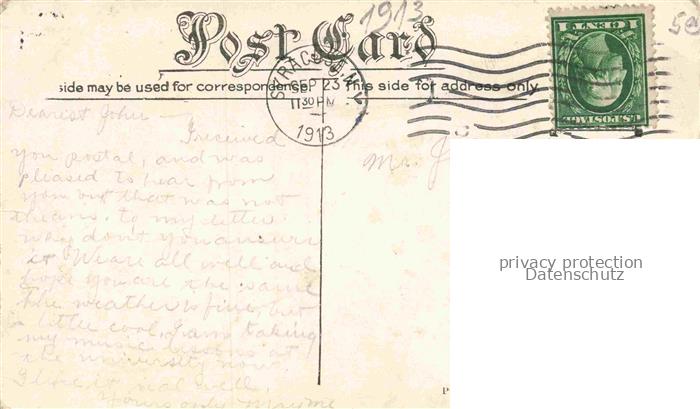 1913
5¢
Post Card
side may be used for correspondence This side for address only
SYRACUSE, N.Y.
SEP 23
11 30 PM
1913
U.S. POSTAGE
1 CENT 1
Dearest John —
I received
you postal, and was
pleased to hear from
you but that was not
the ans. to my letter
why don't you answer
it. We are all well and
hope you are the same
the weather is fine, but
a little cool, I am taking
my music lessons at
the university now.
I like it real well,
Yours only Mayme
Mr. J
privacy protection
Datenschutz
P